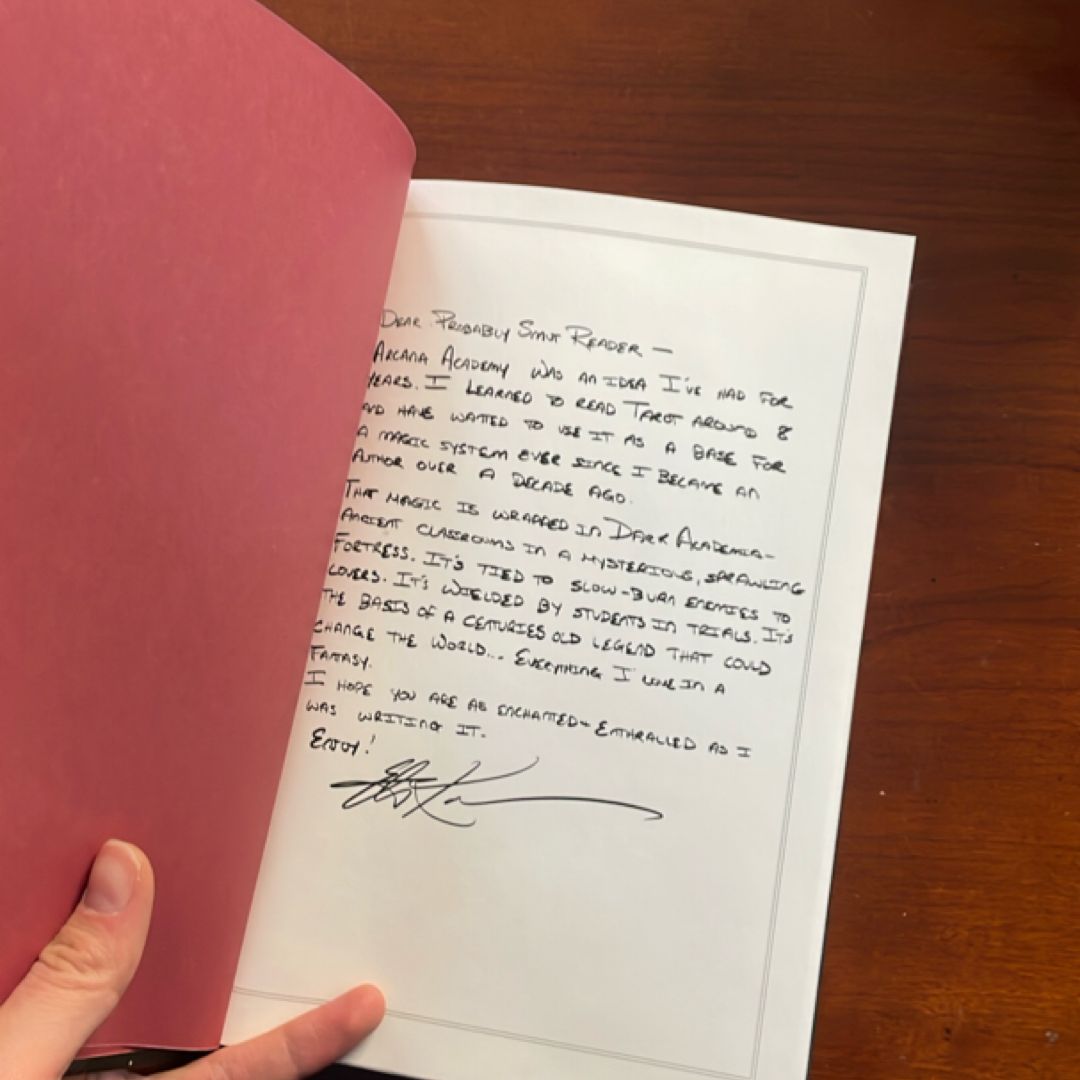 DEAR PROBABLY SMUT READER —
ARCANA ACADEMY WAS AN IDEA I'VE HAD FOR
YEARS. I LEARNED TO READ TAROT AROUND 8
AND HAVE WANTED TO USE IT AS A BASE FOR
A MAGIC SYSTEM EVER SINCE I BECAME AN
AUTHOR OVER A DECADE AGO.
THAT MAGIC IS WRAPPED IN DARK ACADEMIA-
ANCIENT CLASSROOMS IN A MYSTERIOUS, SPRAWLING
FORTRESS. IT'S TIED TO SLOW-BURN ENEMIES TO
LOVERS. IT'S WIELDED BY STUDENTS IN TRIALS. IT'S
THE BASIS OF A CENTURIES OLD LEGEND THAT COULD
CHANGE THE WORLD... EVERYTHING I LOVE IN A
FANTASY.
I HOPE YOU ARE AS ENCHANTED + ENTHRALLED AS I
WAS WRITING IT.
ENJOY!